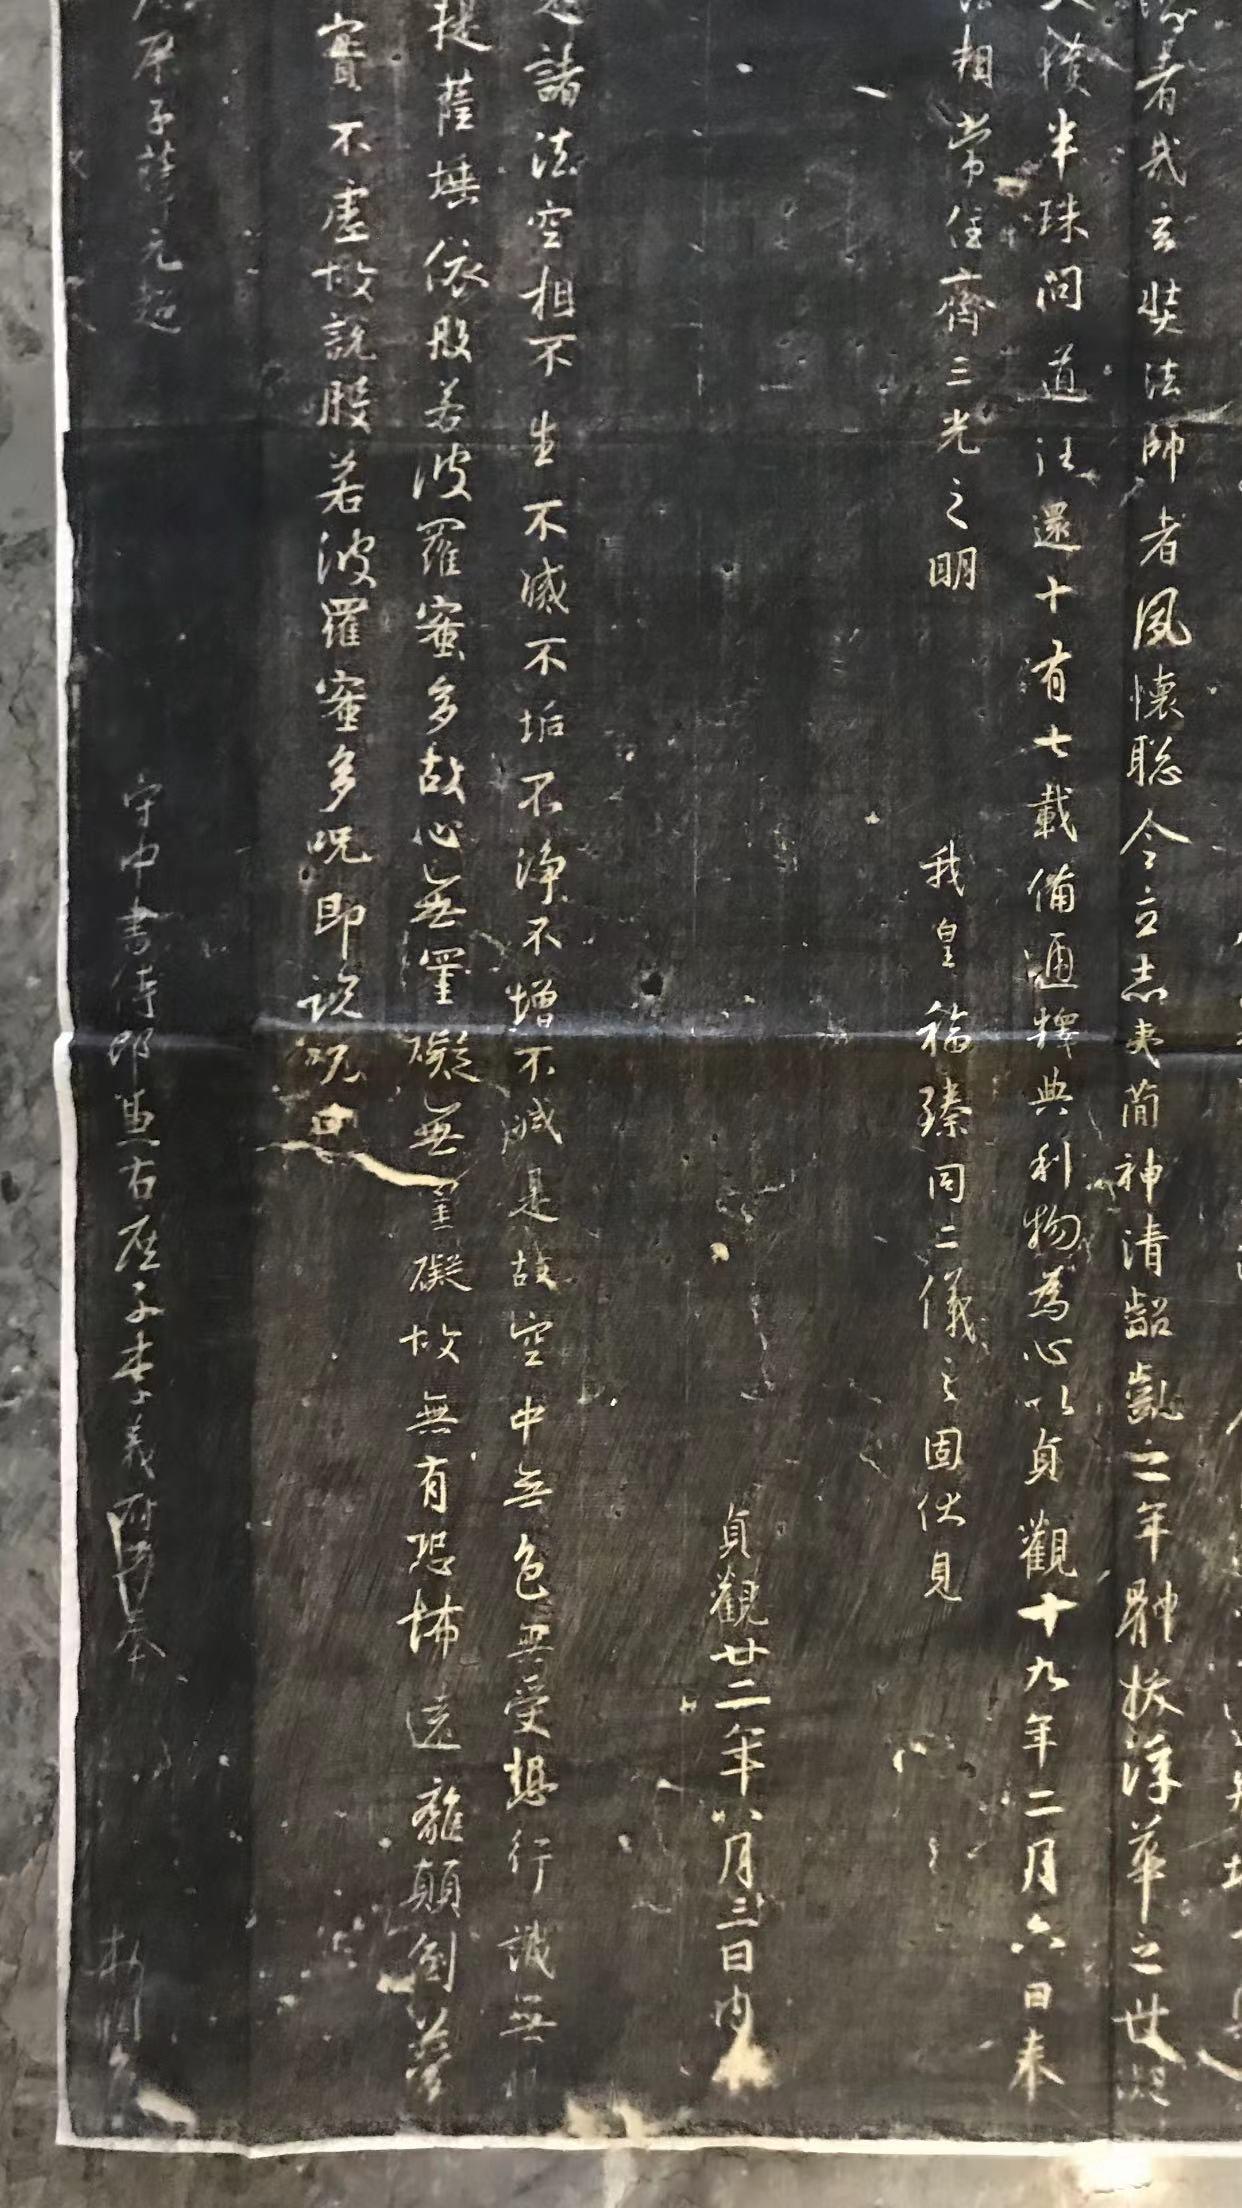 者我玄奘法師者夙懷聡令立志夷簡神清齠齔之年躰拔浮華之世
半珠問道還十有七載備通釋典利物為心以貞觀十九年二月六日奉
相常住齊三光之明
我皇福臻同二儀之固伏見
貞觀廿二年八月三日內
諸法空相不生不滅不垢不淨不增不減是故空中無色無受想行識無
提薩埵依般若波羅蜜多故心無罣礙無罣礙故無有恐怖遠離顛倒夢
實不虛故說般若波羅蜜多呪即說呪曰
庶子薛元超
守中書侍郎兼右庶子李義府奉